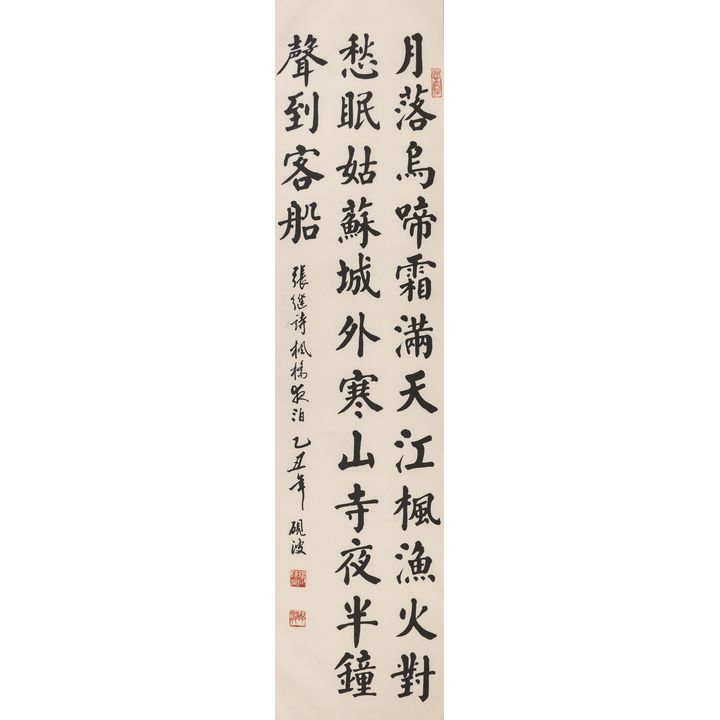 月落烏啼霜滿天江楓漁火對
愁眠姑蘇城外寒山寺夜半鐘
聲到客船
張繼詩楓橋夜泊 乙丑年 硯波